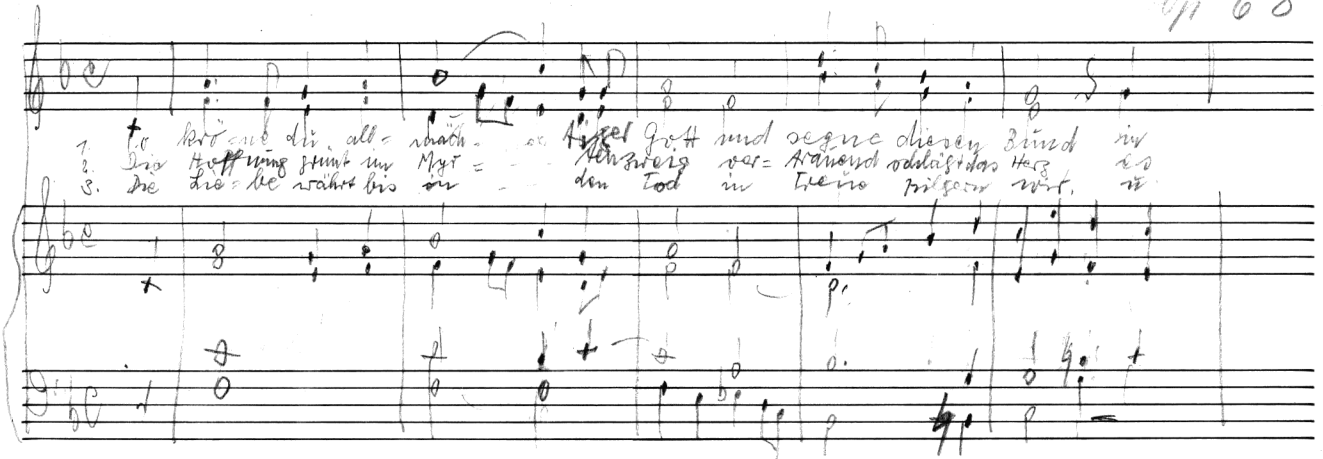 60
1. So krö=ne du, all= mäch- tiger Gott und segne diesen Bund im
2. Die Hoffnung grünt im Myr= tenzweig ver= trauend schlägt das Herz, es
3. Die Lie=be währt bis an den Tod in Treue pilgern wir, u